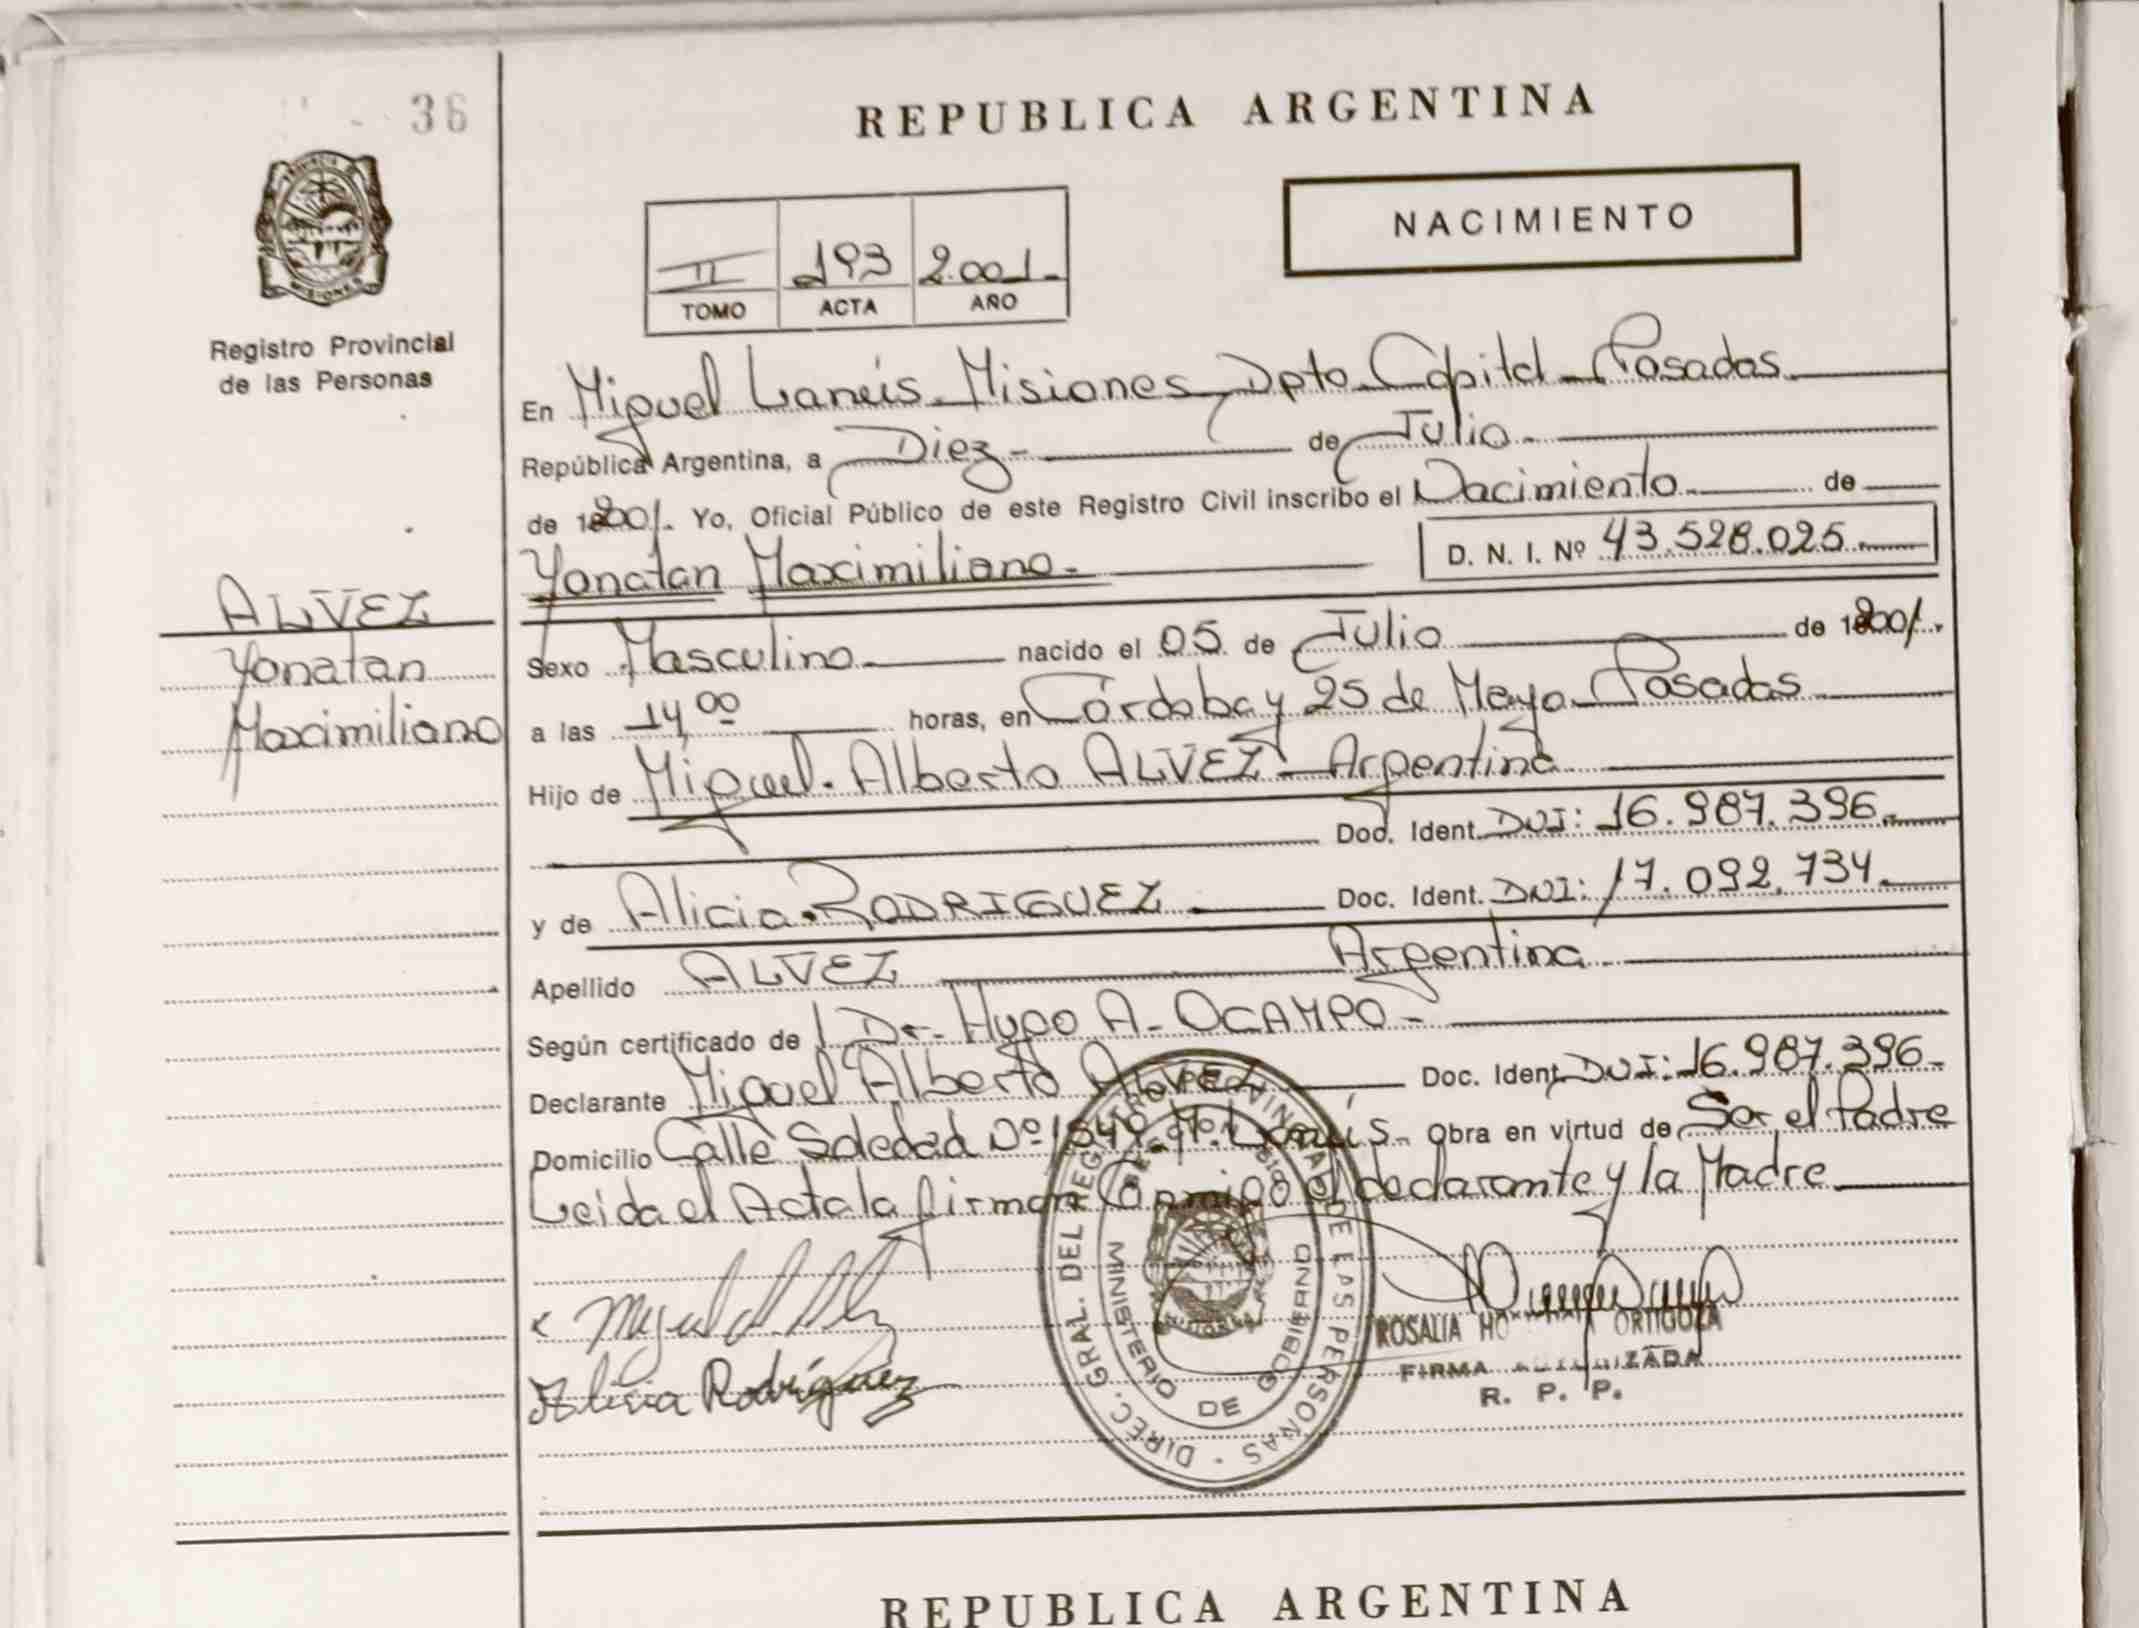 36
REPUBLICA ARGENTINA
NACIMIENTO
II 193 2.001-
TOMO ACTA AÑO
PROVINCIA DE MISIONES
Registro Provincial
de las Personas
En Miguel Lanús. Misiones, Dpto. Capital - Posadas.
República Argentina, a Diez - de Julio -
de 2001. Yo, Oficial Público de este Registro Civil inscribo el Nacimiento de
Yonatan Maximiliano.
D. N. I. Nº 43.528.025.
ALVEZ
Yonatan
Maximiliano
Sexo Masculino nacido el 05 de Julio de 2001.
a las 14,00 horas, en Córdoba y 25 de Mayo - Posadas
Hijo de Miguel. Alberto ALVEZ - Argentina
Doc. Ident. DNI: 16.987.396.
y de Alicia. RODRIGUEZ Doc. Ident. DNI: 17.092.734.
Apellido ALVEZ Argentina
Según certificado de Dr. Hugo A. OCAMPO -
Declarante Miguel Alberto ALVEZ Doc. Ident. DNI: 16.987.396.
Domicilio Calle Soledad Nº M. Lanús. Obra en virtud de Ser el Padre
Leida el Acta la firman Conmigo el declarante y la Madre
DIREC. GRAL. DEL REGISTRO PROVINCIAL DE LAS PERSONAS
MINISTERIO DE GOBIERNO
Alicia Rodriguez
ROSALIA ORTIGOZA
FIRMA AUTORIZADA
R. P. P.
REPUBLICA ARGENTINA